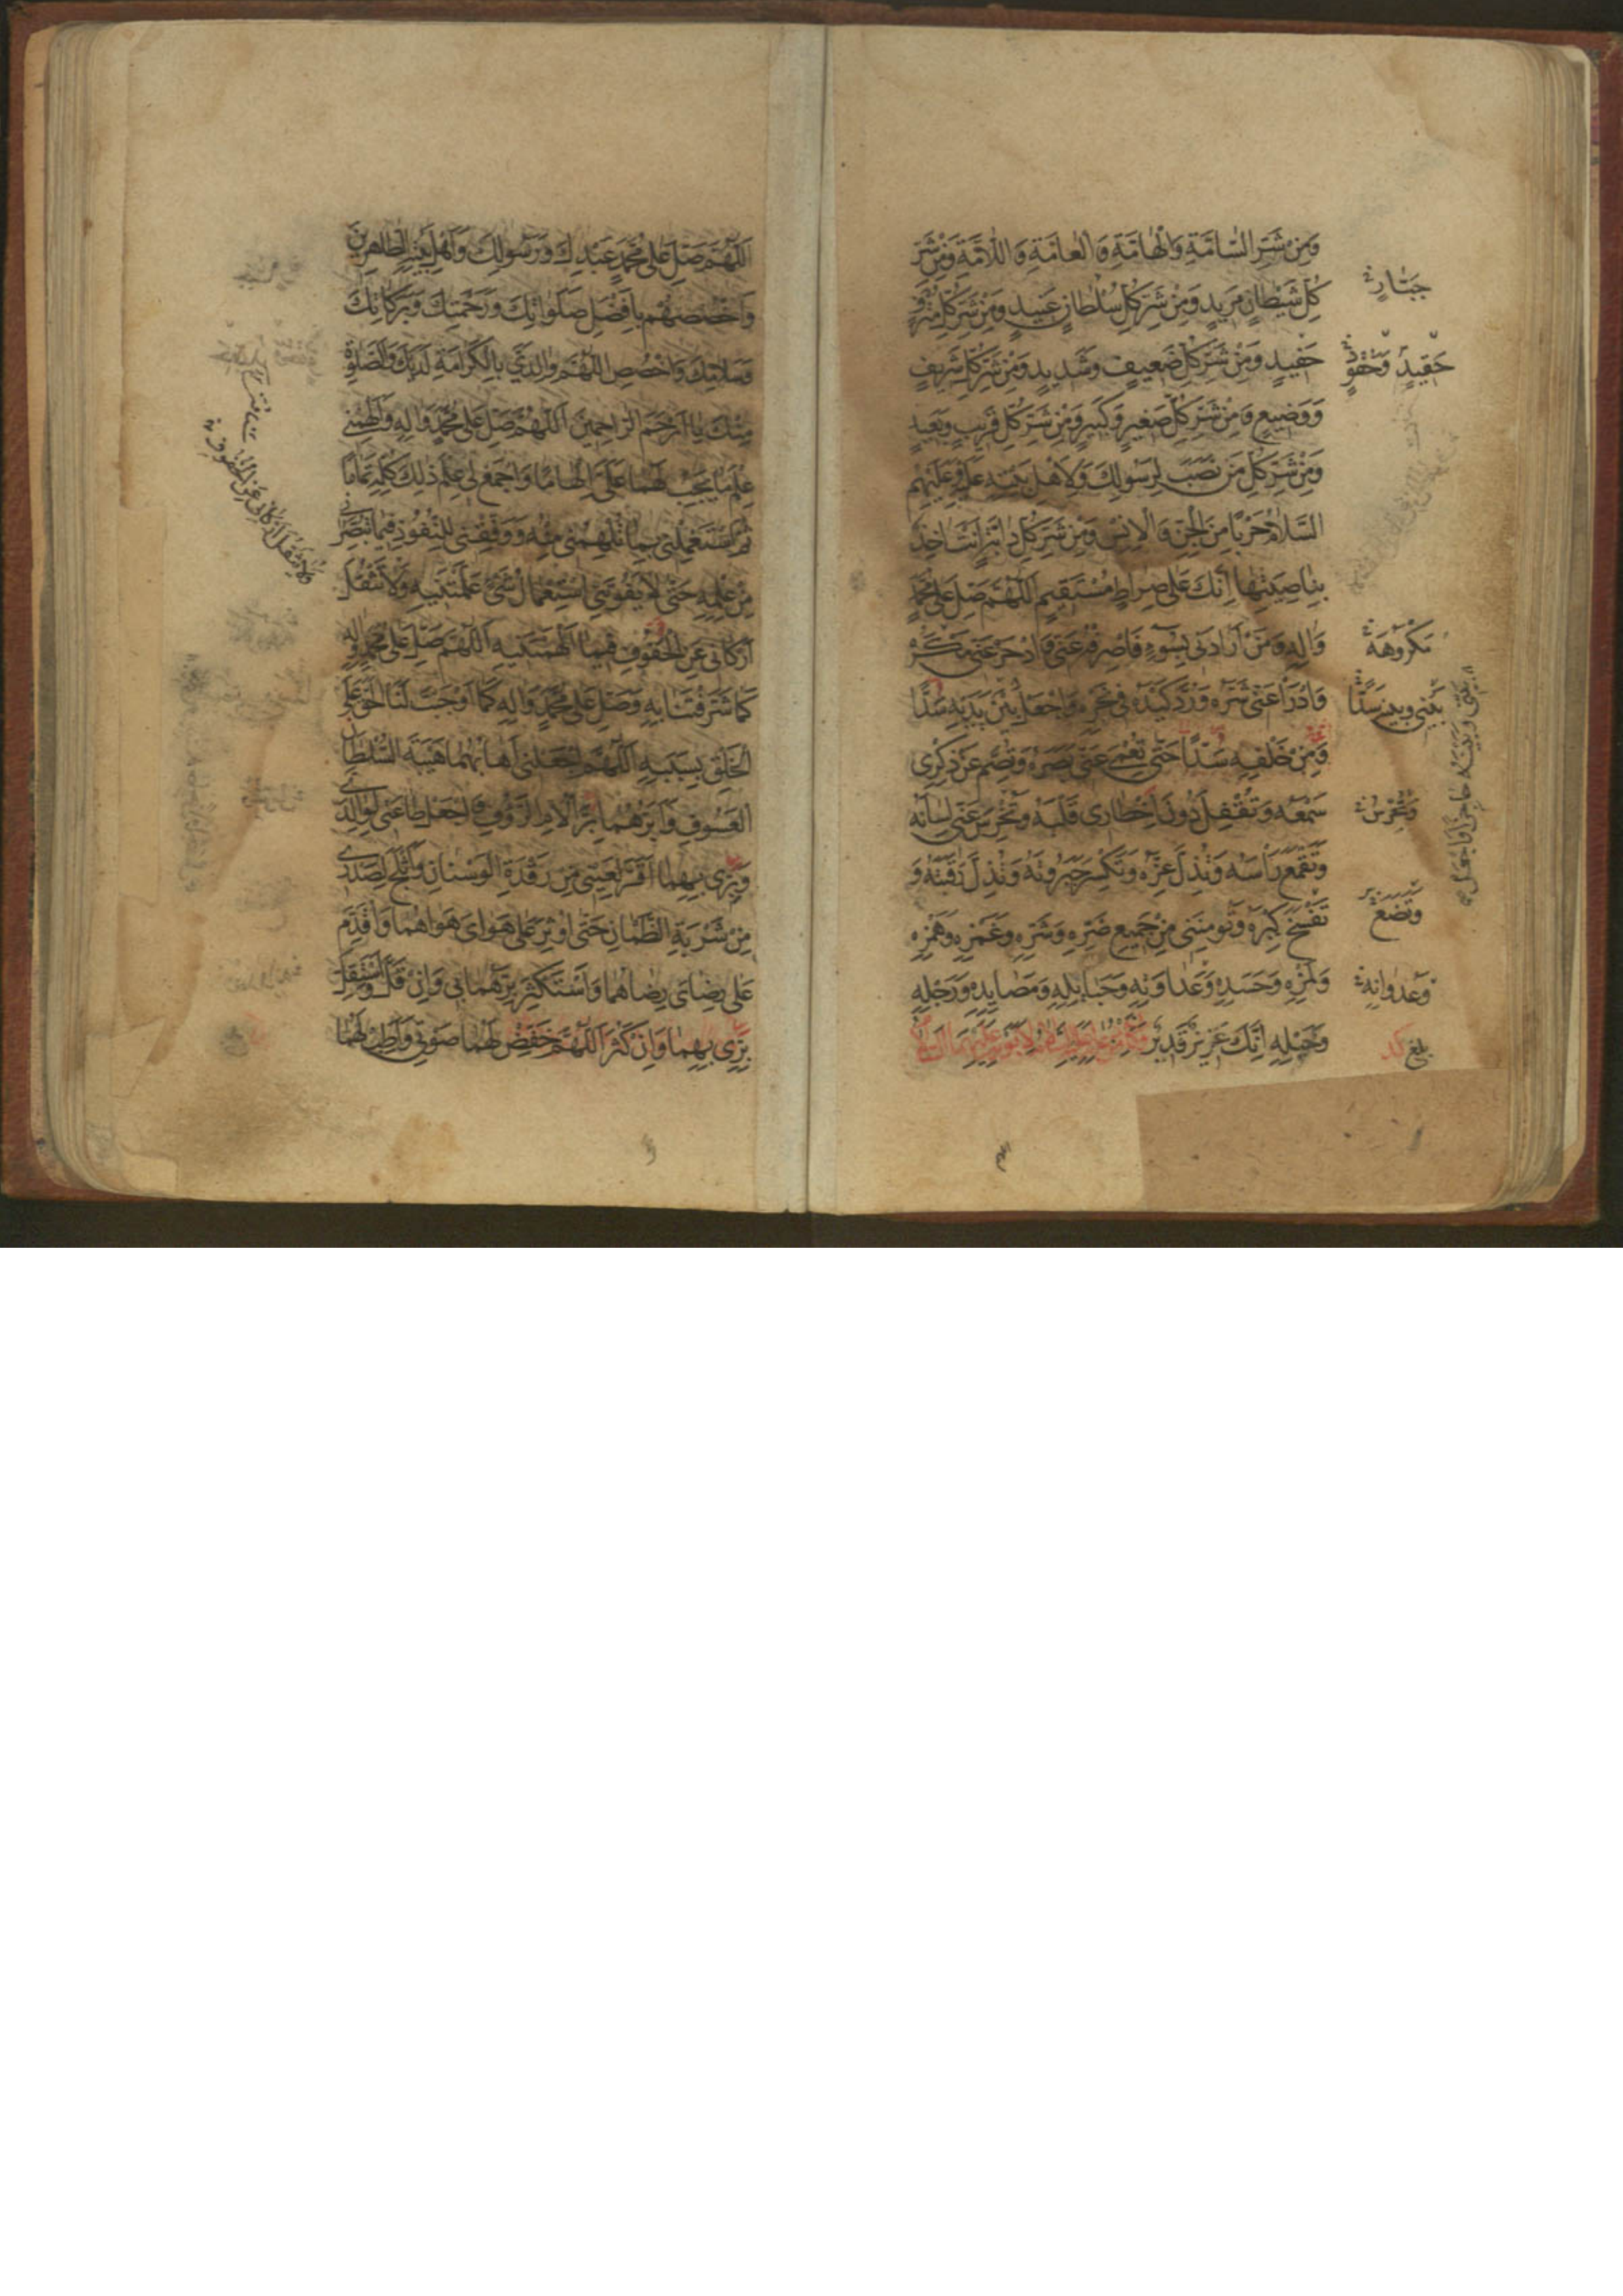 وَمِنْ شَرِّ السَّامَّةِ وَالْهَامَّةِ وَالْعَامَّةِ وَاللَّامَّةِ وَمِنْ شَرِّ
كُلِّ شَيْطَانٍ مَرِيدٍ وَمِنْ شَرِّ كُلِّ سُلْطَانٍ عَنِيدٍ وَمِنْ شَرِّ كُلِّ مُتْرَفٍ
حَفِيدٍ وَمِنْ شَرِّ كُلِّ ضَعِيفٍ وَشَدِيدٍ وَمِنْ شَرِّ كُلِّ شَرِيفٍ
وَوَضِيعٍ وَمِنْ شَرِّ كُلِّ صَغِيرٍ وَكَبِيرٍ وَمِنْ شَرِّ كُلِّ قَرِيبٍ وَبَعِيدٍ
وَمِنْ شَرِّ كُلِّ مَنْ نَصَبَ لِرَسُولِكَ وَلِأَهْلِ بَيْتِهِ عَلَيْهِ وَعَلَيْهِمُ
السَّلَامُ حَرْبًا مِنَ الْجِنِّ وَالْإِنْسِ وَمِنْ شَرِّ كُلِّ دَابَّةٍ أَنْتَ آخِذٌ
بِنَاصِيَتِهَا إِنَّكَ عَلَى صِرَاطٍ مُسْتَقِيمٍ اللّهُمَّ صَلِّ عَلَى مُحَمَّدٍ
وَآلِهِ وَمَنْ أَرَادَنِي بِسُوءٍ فَاصْرِفْهُ عَنِّي وَادْحَرْ عَنِّي مَكْرَهُ
وَادْرَأْ عَنِّي شَرَّهُ وَرُدَّ كَيْدَهُ فِي نَحْرِهِ وَاجْعَلْ بَيْنَ يَدَيْهِ سَدًّا
وَمِنْ خَلْفِهِ سَدًّا حَتَّى تُعْمِيَ عَنِّي بَصَرَهُ وَتُصِمَّ عَنْ ذِكْرِي
سَمْعَهُ وَتُقْفِلَ دُونَ إِخْطَارِي قَلْبَهُ وَتُخْرِسَ عَنِّي لِسَانَهُ
وَتَقْمَعَ رَأْسَهُ وَتُذِلَّ عِزَّهُ وَتَكْسِرَ جَبَرُوتَهُ وَتُذِلَّ رَقَبَتَهُ وَ
تَفْسَخَ كِبْرَهُ وَتُؤْمِنَنِي مِنْ جَمِيعِ ضَرِّهِ وَشَرِّهِ وَغَمْزِهِ وَهَمْزِهِ
وَلَمْزِهِ وَحَسَدِهِ وَعَدَاوَتِهِ وَحَبَائِلِهِ وَمَصَايِدِهِ وَرَجِلِهِ
وَخَيْلِهِ إِنَّكَ عَزِيزٌ قَدِيرٌ
جَبَّارٍ
حَقِيدٍ وَحَقُودٍ
مَكْرُوهَهُ
بَيْنِي وَبَيْنَهُ سَدًّا
وَتُخْرِسَ
وَتَضَعَ
وَعُدْوَانِهِ
بلغ
اللّهُمَّ صَلِّ عَلَى مُحَمَّدٍ عَبْدِكَ وَرَسُولِكَ وَأَهْلِ بَيْتِهِ الطَّاهِرِينَ
وَاخْصُصْهُمْ بِأَفْضَلِ صَلَوَاتِكَ وَرَحْمَتِكَ وَبَرَكَاتِكَ
وَسَلَامِكَ وَاخْصُصِ اللّهُمَّ وَالِدَيَّ بِالْكَرَامَةِ لَدَيْكَ وَالصَّلٰوةِ
مِنْكَ يَا أَرْحَمَ الرَّاحِمِينَ اَللّهُمَّ صَلِّ عَلَى مُحَمَّدٍ وَآلِهِ وَأَلْهِمْنِي
عِلْمَ مَا يَجِبُ لَهُمَا عَلَيَّ إِلْهَامًا وَاجْمَعْ لِي عِلْمَ ذَلِكَ كُلِّهِ تَمَامًا
ثُمَّ اسْتَعْمِلْنِي بِمَا تُلْهِمُنِي مِنْهُ وَوَفِّقْنِي لِلنُّفُوذِ فِيمَا تُبَصِّرُنِي
مِنْ عِلْمِهِ حَتَّى لَا يَفُوتَنِي اسْتِعْمَالُ شَيْءٍ عَلَّمْتَنِيهِ وَلَا تَثْقُلَ
أَرْكَانِي عَنِ الْحُفُوفِ فِيمَا أَلْهَمْتَنِيهِ اَللّهُمَّ صَلِّ عَلَى مُحَمَّدٍ وَآلِهِ
كَمَا شَرَّفْتَنَا بِهِ وَصَلِّ عَلَى مُحَمَّدٍ وَآلِهِ كَمَا أَوْجَبْتَ لَنَا الْحَقَّ عَلَى
الْخَلْقِ بِسَبَبِهِ اَللّهُمَّ اجْعَلْنِي أَهَابُهُمَا هَيْبَةَ السُّلْطَانِ
الْعَسُوفِ وَأَبَرُّهُمَا بِرَّ الْأُمِّ الرَّؤُوفِ وَاجْعَلْ طَاعَتِي لِوَالِدَيَّ
وَبِرِّي بِهِمَا أَقَرَّ لِعَيْنِي مِنْ رَقْدَةِ الْوَسْنَانِ وَأَثْلَجَ لِصَدْرِي
مِنْ شَرْبَةِ الظَّمْآنِ حَتَّى أُوثِرَ عَلَى هَوَايَ هَوَاهُمَا وَأُقَدِّمَ
عَلَى رِضَايَ رِضَاهُمَا وَأَسْتَكْثِرَ بِرَّهُمَا بِي وَإِنْ قَلَّ وَأَسْتَقِلَّ
بِرِّي بِهِمَا وَإِنْ كَثُرَ اَللّهُمَّ خَفِّضْ لَهُمَا صَوْتِي وَأَطِبْ لَهُمَا